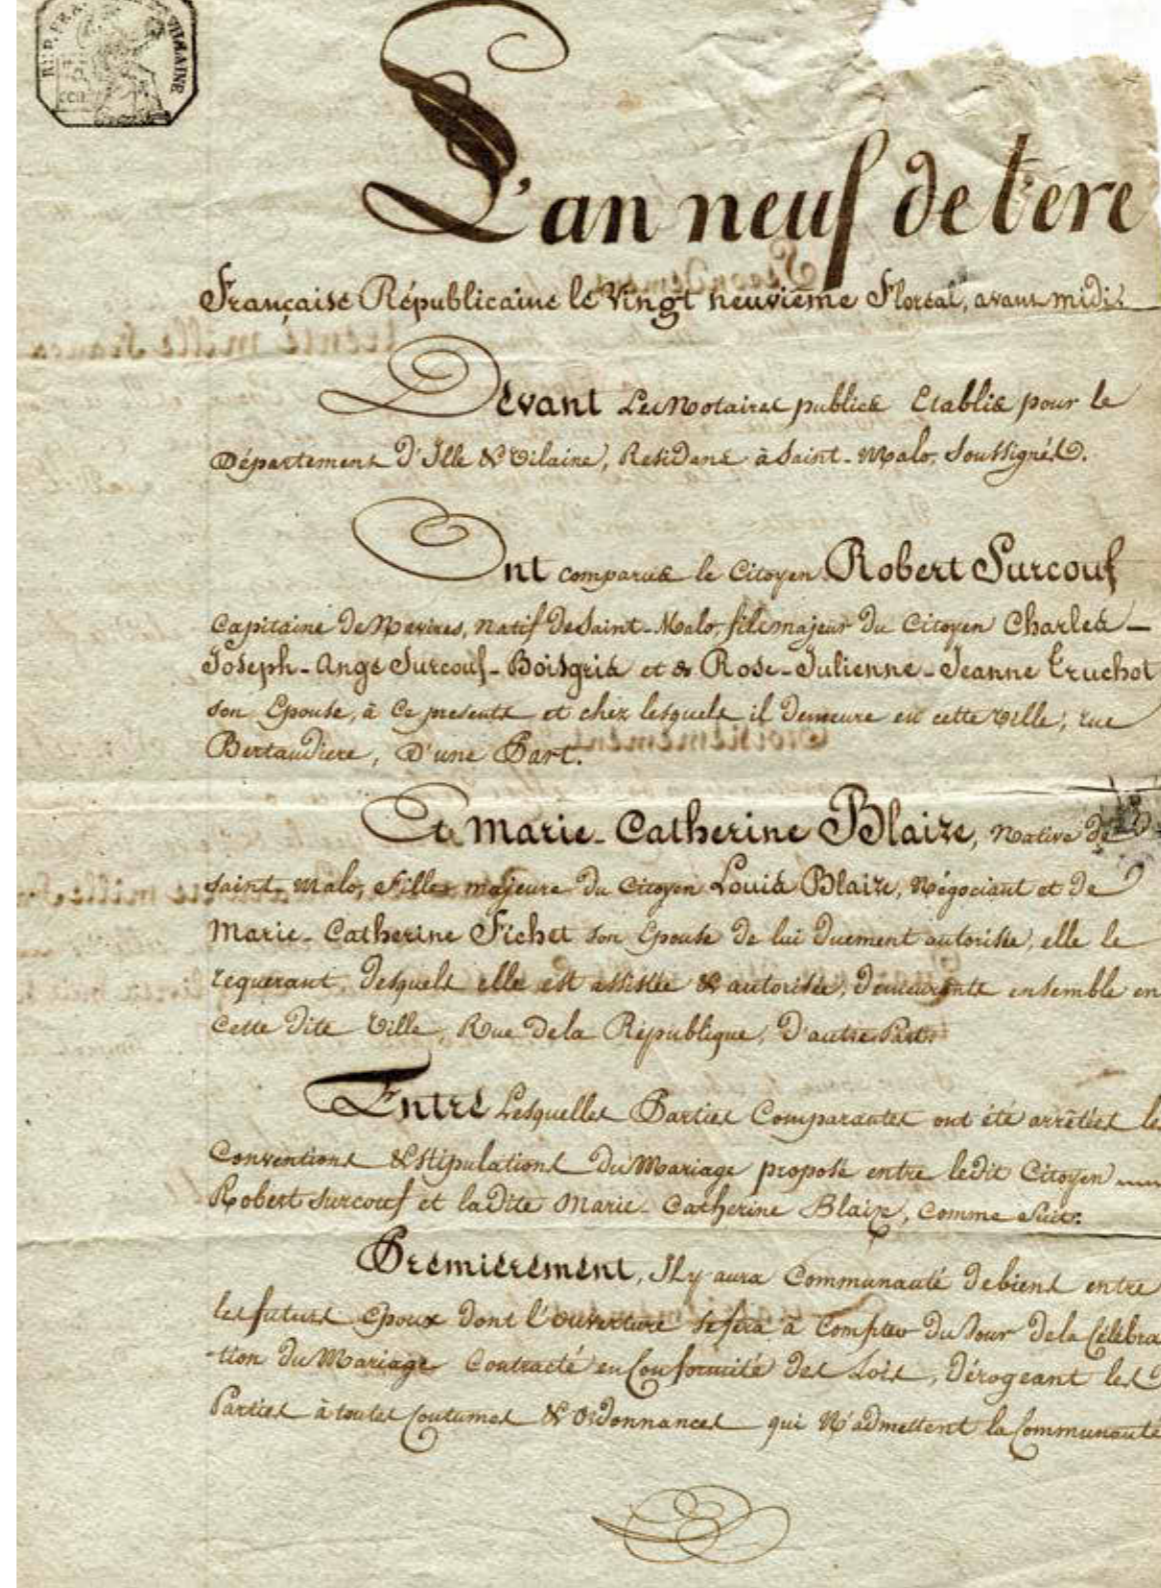 REP. FRA. VILAINE
L'an neuf de l'ere
Française Républicaine le Vingt neuvieme Floréal, avant midi
Devant Les Notaires publics Etablis pour le
Département D'Ille & Vilaine, Residens à Saint-Malo, Soussignés.
Ont comparus le Citoyen Robert Surcouf
Capitaine De Navires, natif De Saint-Malo, fils majeur Du Citoyen Charles-
Joseph-Ange Surcouf-Boisgris et de Rose-Julienne-Jeanne Truchot
son Epouse, à Ce presents et chez lesquels il Demeure en cette Ville, rue
Bertaudiere, D'une Part.
Et Marie-Catherine Blaize, Native de
Saint-Malo, Fille majeure Du Citoyen Louis Blaize, Négociant et de
Marie-Catherine Fichet son Epouse de lui Duement autorisée, elle le
requerant, Desquels elle est assistée & autorisée, Demeurants ensemble en
Cette Dite Ville, Rue De la République, D'autre Part.
Entre Lesquelles Parties Comparantes ont été arrêtées les
Conventions & Stipulations Du Mariage proposé entre ledit Citoyen
Robert Surcouf et laDite Marie-Catherine Blaize, Comme Suit.
Premierement, Il y aura Communauté De biens entre
les futurs Epoux Dont l'ouverture se fera à Compter Du Jour De la Célébra
-tion Du Mariage Contracté en Conformité Des Lois, Dérogeant les
Parties à toutes Coutumes & Ordonnances qui N'admettent la Communauté